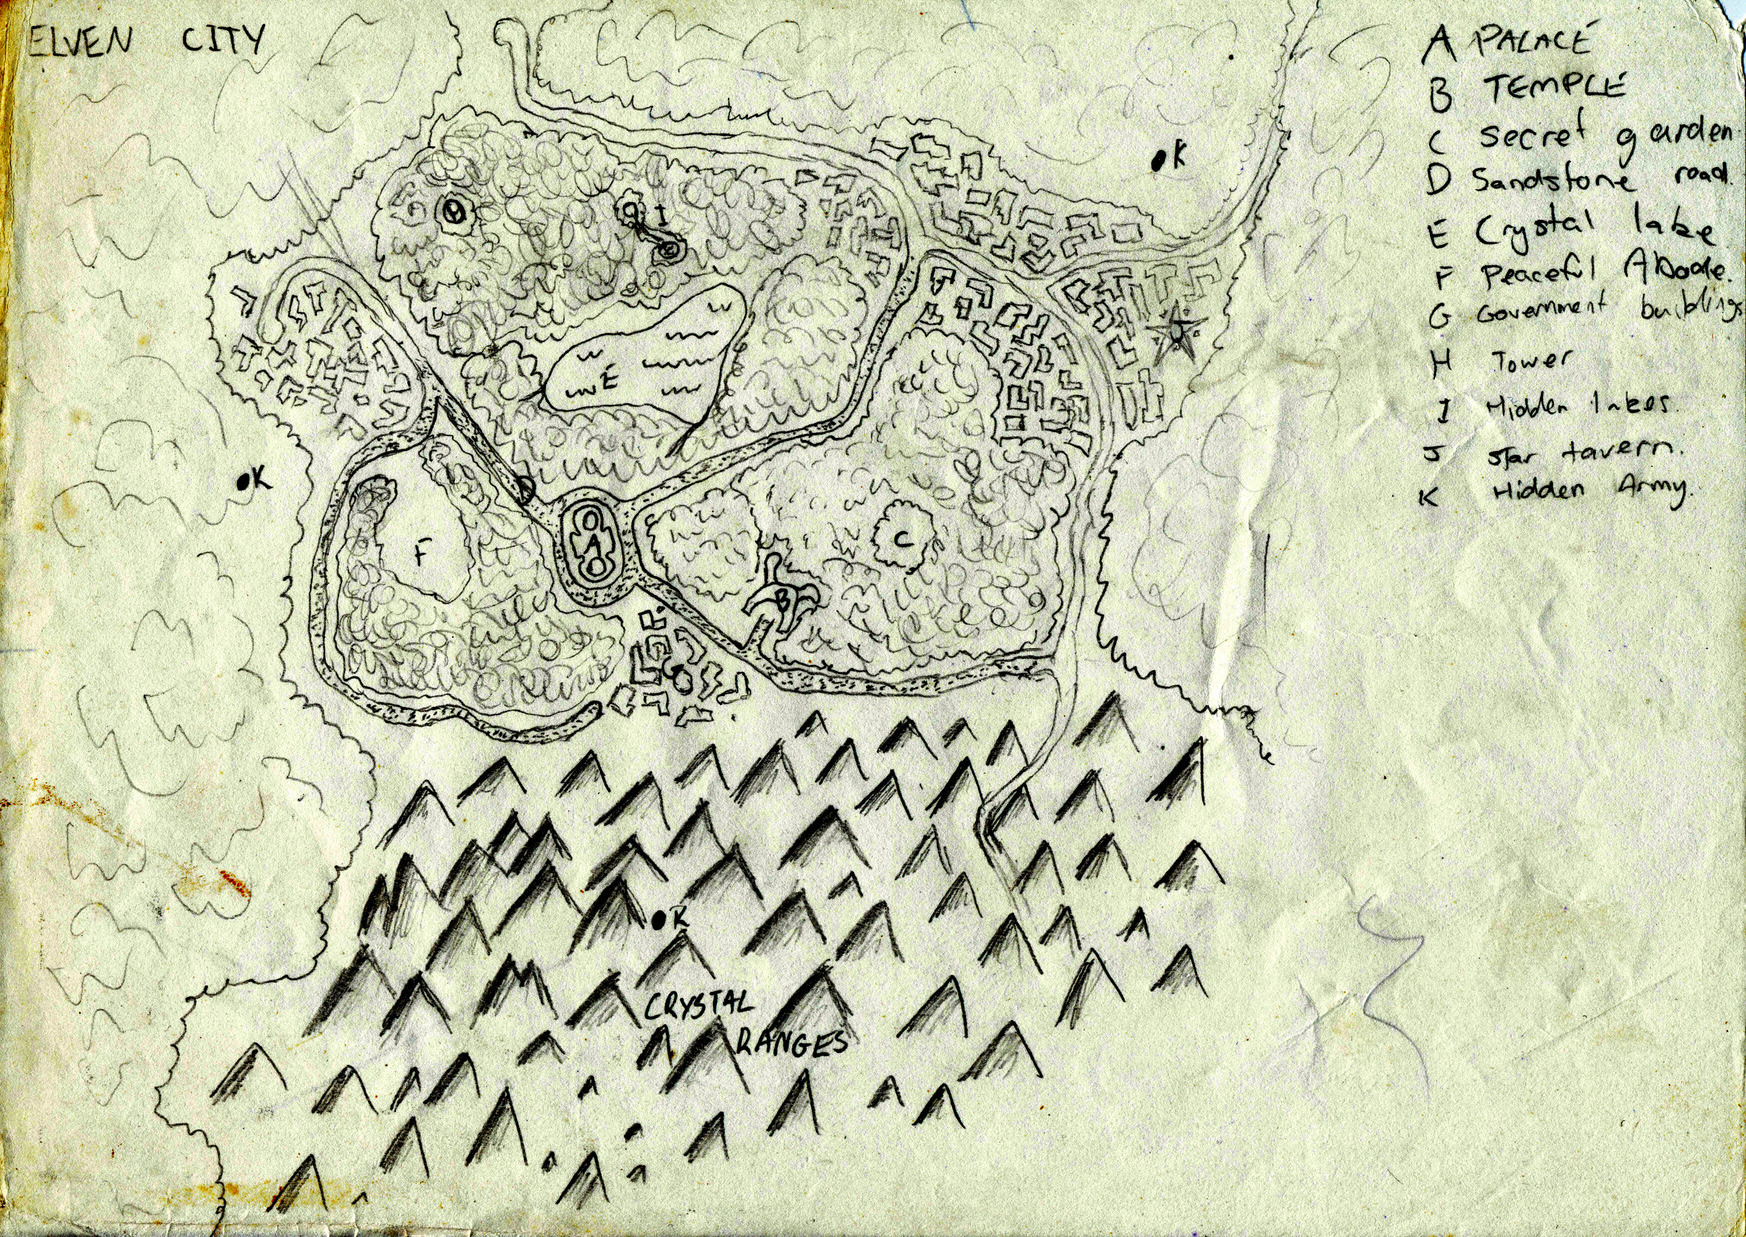 ELVEN CITY
A PALACE
B TEMPLE
C Secret garden
D Sandstone road.
E Crystal lake
F Peaceful Abode.
G Government buildings
H Tower
I Hidden lakes.
J Star tavern.
K Hidden Army.
K
H
I
J
E
K
D
F
A
C
B
G
K
CRYSTAL
RANGES